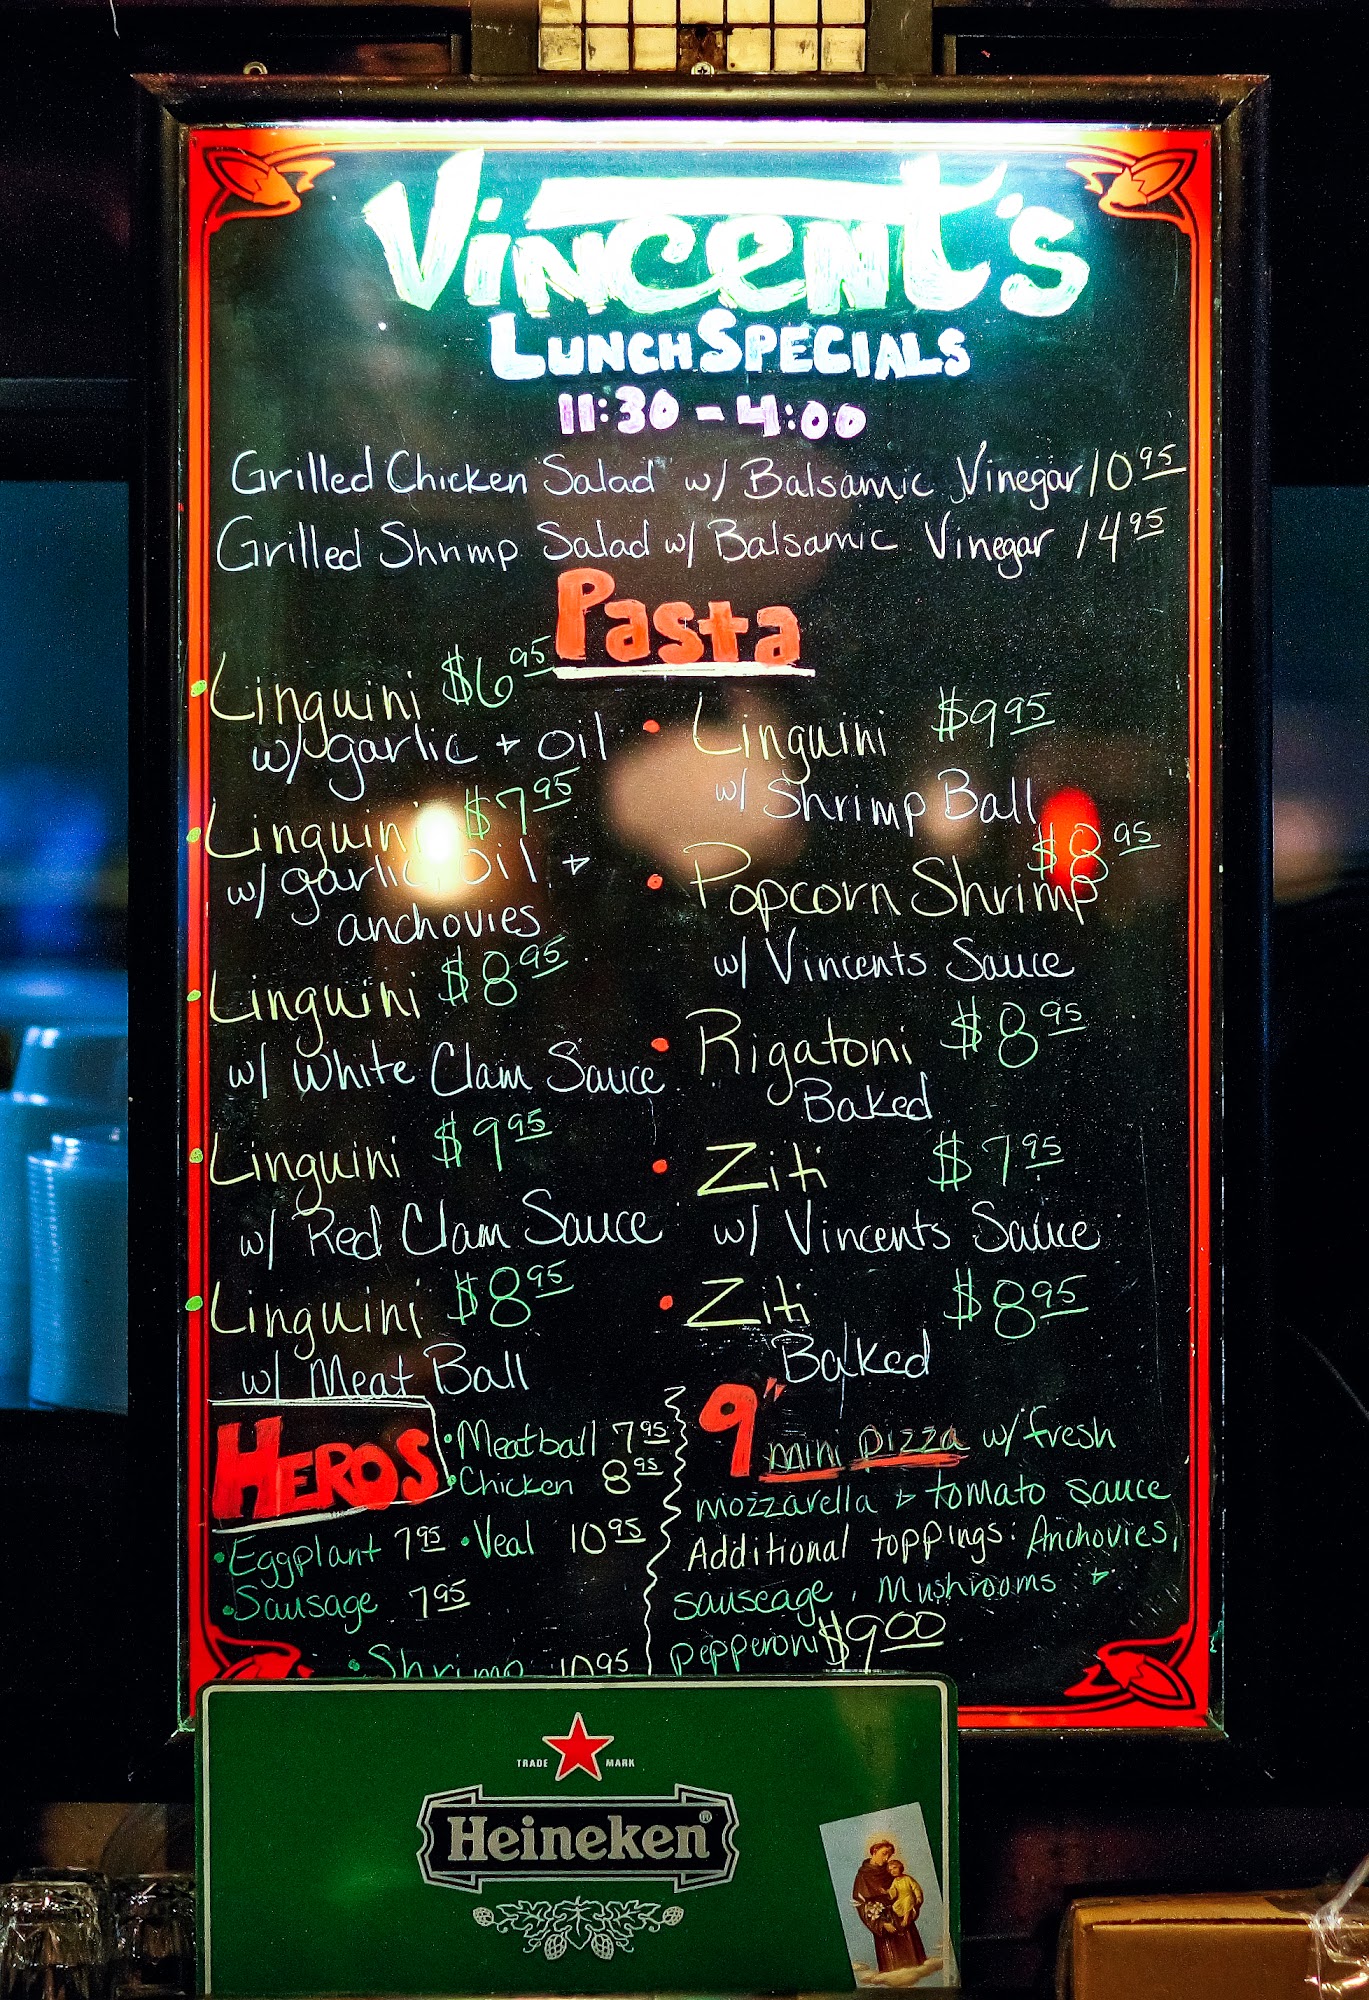 Vincent's
Lunch Specials
11:30 - 4:00
Grilled Chicken Salad w/ Balsamic Vinegar 10.95
Grilled Shrimp Salad w/ Balsamic Vinegar 14.95
Pasta
Linguini $6.95
w/ garlic + oil
Linguini $7.95
w/ garlic, oil +
anchovies
Linguini $8.95
w/ White Clam Sauce
Linguini $9.95
w/ Red Clam Sauce
Linguini $8.95
w/ Meat Ball
Linguini $9.95
w/ Shrimp Ball
Popcorn Shrimp $8.95
w/ Vincents Sauce
Rigatoni $8.95
Baked
Ziti $7.95
w/ Vincents Sauce
Ziti $8.95
Baked
HEROS
Meatball 7.95
Chicken 8.95
Eggplant 7.95 Veal 10.95
Sausage 7.95
Shrimp 10.95
9" mini pizza w/ fresh
mozzarella + tomato sauce
Additional toppings: Anchovies,
sauseage, Mushrooms +
pepperoni $9.00
TRADE MARK
Heineken®